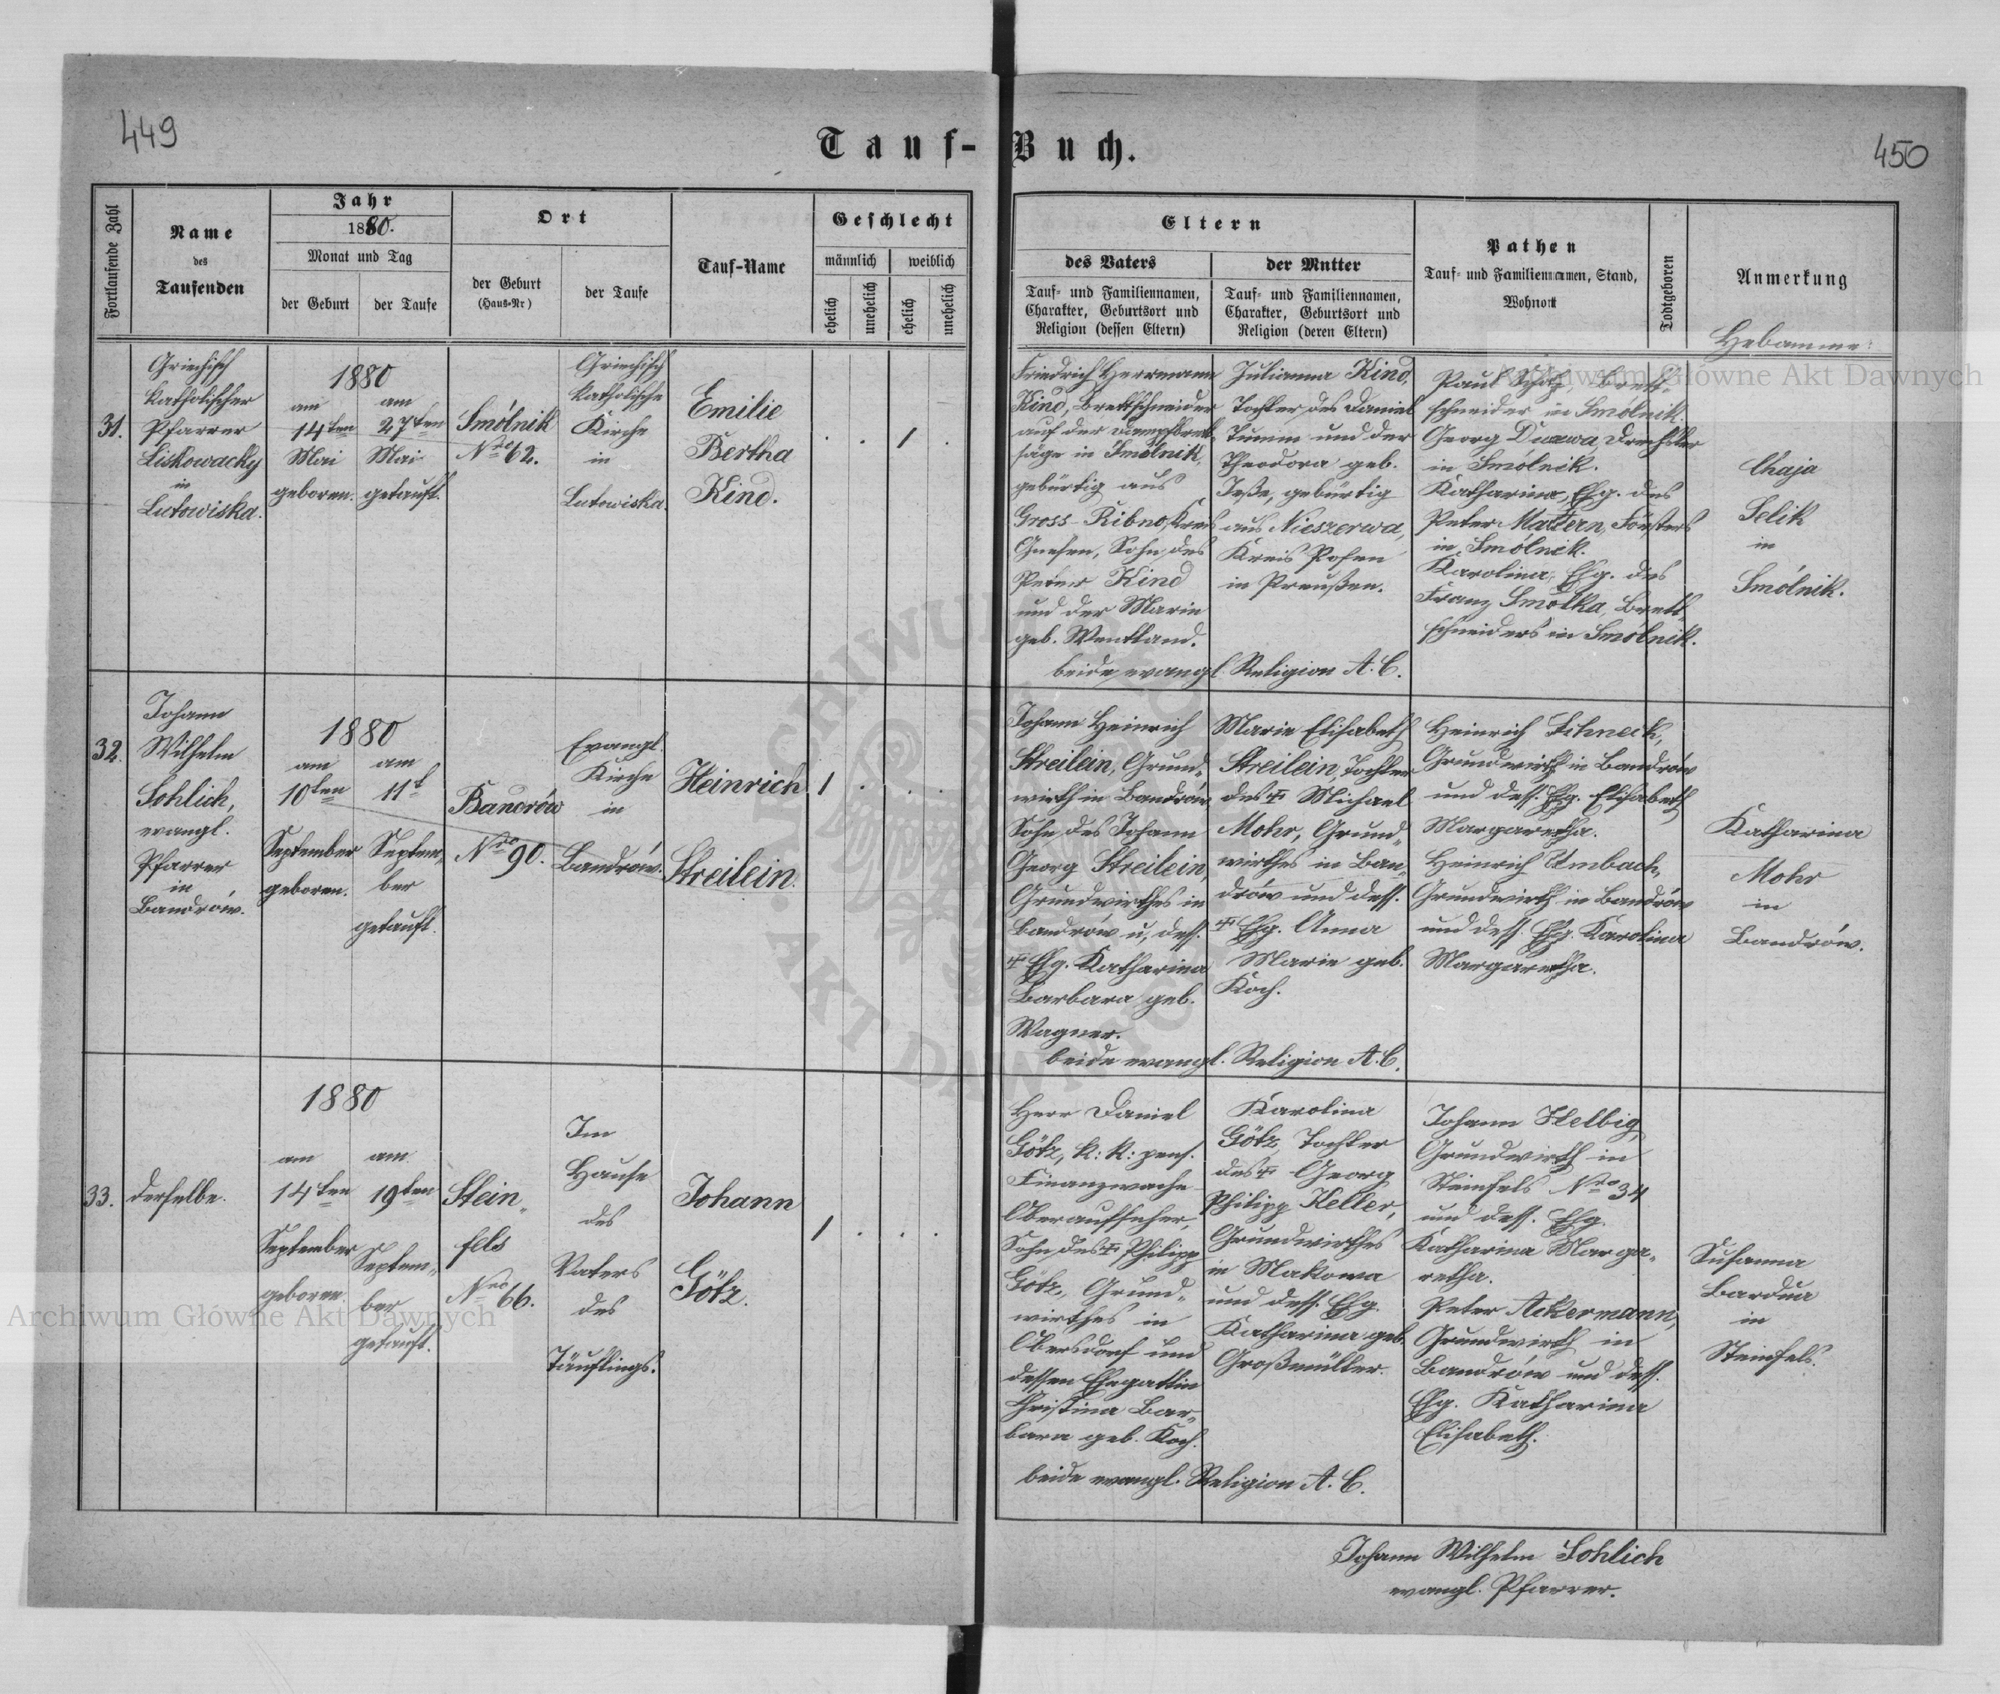 449
450
Tauf-Buch.
Fortlaufende Zahl
Name
des
Taufenden
Jahr
1880.
Monat und Tag
der Geburt
der Taufe
Ort
der Geburt
(Haus-Nr)
der Taufe
Tauf-Name
Geschlecht
männlich
weiblich
ehelich
unehelich
ehelich
unehelich
Eltern
des Vaters
Tauf- und Familiennamen,
Charakter, Geburtsort und
Religion (dessen Eltern)
der Mutter
Tauf- und Familiennamen,
Charakter, Geburtsort und
Religion (deren Eltern)
Pathen
Tauf- und Familiennamen, Stand,
Wohnort
Todtgeboren
Anmerkung
Hebamme:
31.
Griechisch
katholischer
Pfarrer
Liskowacky
in
Lutowiska.
1880
am
14ten
Mai
geboren.
am
27ten
Mai
getauft.
Smólnik
Nro 62.
Griechisch
katholische
Kirche
in
Lutowiska
Emilie
Bertha
Kind.
1
Friedrich Herrmann
Kind, Brettschneider
auf der Dampfbrett-
säge in Smólnik,
gebürtig aus
Gross-Ribno, Kreis
Gnesen, Sohn des
Peter Kind
und der Marie
geb. Wentland.
beide evangl. Religion A. C.
Julianna Kind,
Tochter des Daniel
Tumm und der
Theodora geb.
gebürtig
aus Nieszerwa,
Kreis Posen
in Preußen.
Paul Brett-
schneider in Smólnik.
Georg Drechsler
in Smólnik.
Katharina, Ehg. des
Peter Mattern, Försters
in Smólnik.
Karolina, Ehg. des
Franz Smolka, Brett-
schneiders in Smólnik.
Chaja
Selik
in
Smólnik.
32.
Johann
Wilhelm
Sohlich,
evangl.
Pfarrer
in
Bandrów.
1880
am
10ten
September
geboren.
am
11t
Septem-
ber
getauft.
Bandrów
Nro 90.
Evangl.
Kirche
in
Bandrów.
Heinrich
Streilein.
1
Johann Heinrich
Streilein, Grund-
wirth in Bandrów
Sohn des Johann
Georg Streilein,
Grundwirthes in
Bandrów u. dess.
✝ Ehg. Katharina
Barbara geb.
Wagner.
beide evangl. Religion A. C.
Marie Elisabeth
Streilein, Tochter
des ✝ Michael
Mohr, Grund-
wirthes in Ban-
drów und dess.
✝ Ehg. Anna
Marie geb.
Koch.
Heinrich Schneck,
Grundwirth in Bandrów
und dess. Ehg. Elisabeth
Margaretha.
Heinrich Umbach,
Grundwirth in Bandrów
und dess. Ehg. Karolina
Margaretha.
Katharina
Mohr
in
Bandrów.
33.
derselbe.
1880
am
14ten
September
geboren.
am
19ten
Septem-
ber
getauft.
Stein-
fels
Nro 66.
Im
Hause
des
Vaters
des
Täuflings.
Johann
Götz.
1
Herr Daniel
Götz, k: k: pens.
Finanzwache-
Oberaufseher,
Sohn des ✝ Philipp
Götz, Grund-
wirthes in
Obersdorf und
dessen Ehegattin
Christina Bar-
bara geb. Koch.
beide evangl. Religion A. C.
Karolina
Götz, Tochter
des ✝ Georg
Philipp Keller,
Grundwirthes
in Makowa
und dess. Ehg.
Katharina geb.
Großmüller.
Johann Helbig,
Grundwirth in
Steinfels Nro 34
und dess. Ehg.
Katharina Marga-
retha.
Peter Ackermann,
Grundwirth in
Bandrów und dess.
Ehg. Katharina
Elisabeth.
Susanna
Bardua
in
Steinfels.
Johann Wilhelm Sohlich
evangl. Pfarrer.
Archiwum Główne Akt Dawnych
Archiwum Główne Akt Dawnych